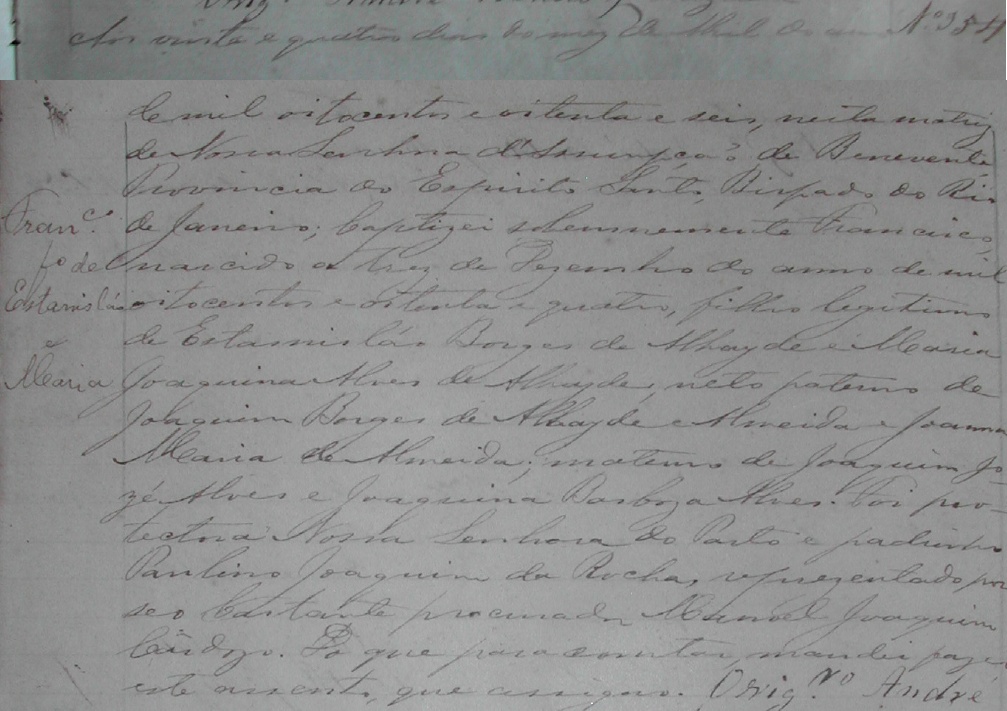 Aos vinte e quatro dias do mez de Abril do anno Nº 354
de mil oitocentos e oitenta e seis, nesta matriz
de Nossa Senhora d'Assumpção, de Benevente,
Provincia do Espirito Santo, Bispado do Rio
de Janeiro; baptizei solemnemente Francisco,
nascido a trez de Dezembro do anno de mil
oitocentos e oitenta e quatro, filho legitimo
de Estanisláo Borges de Athayde e Maria
Joaquina Alves de Athayde, neto paterno de
Joaquim Borges de Athayde e Almeida e Joanna
Maria de Almeida; materno de Joaquim Jo-
zé Alves e Joaquina Barboza Alves. Foi pro-
tectora Nossa Senhora do Parto e padrinho
Paulino Joaquim da Rocha, reprezentado por
seo bastante procurador Manoel Joaquim
Cardozo. Do que para constar, mandei fazer
este assento, que assigno. O Vig.ro André
Fran.co
fo de
Estanisláo
e
Maria